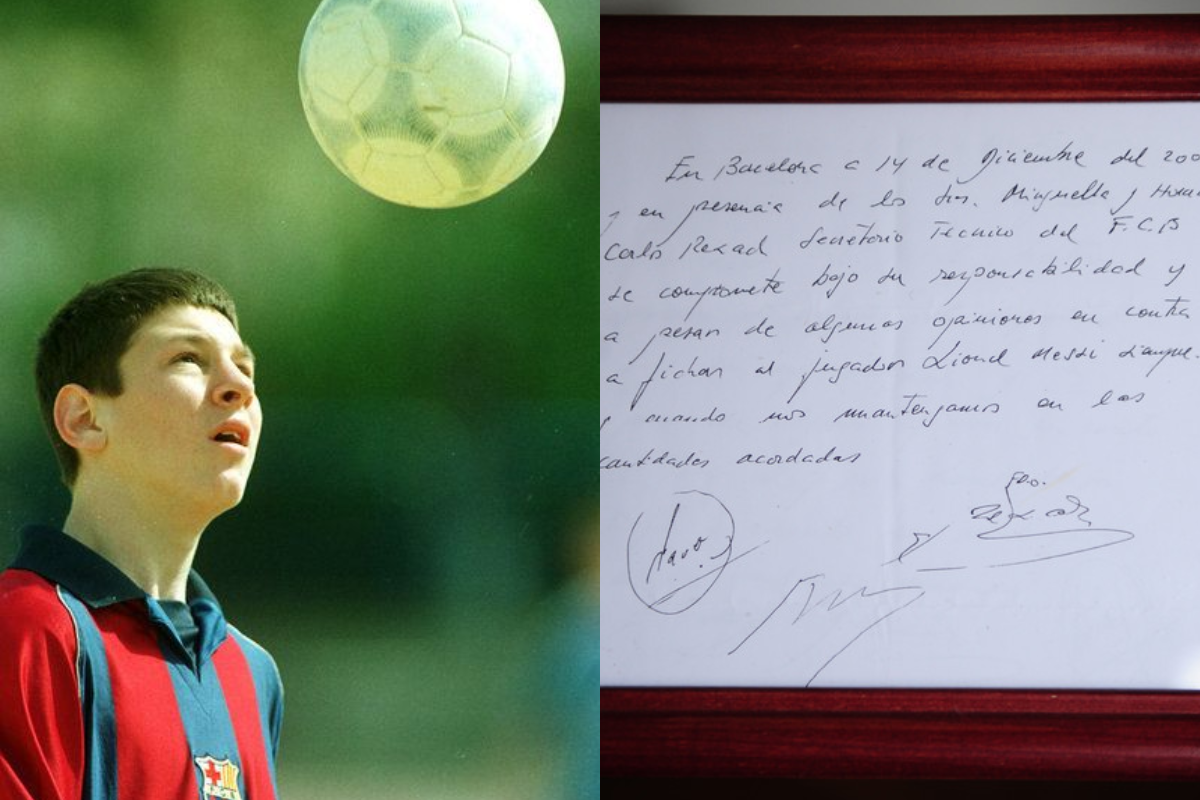 En Barcelona a 14 de Diciembre del 200
y en presencia de los Sres. Minguella y Horac
Carlo Rexach Secretario Técnico del F.C.B
se compromete bajo su responsabilidad y
a pesar de algunas opiniones en contra
a fichar al jugador Lionel Messi siempre
y cuando nos mantengamos en las
cantidades acordadas